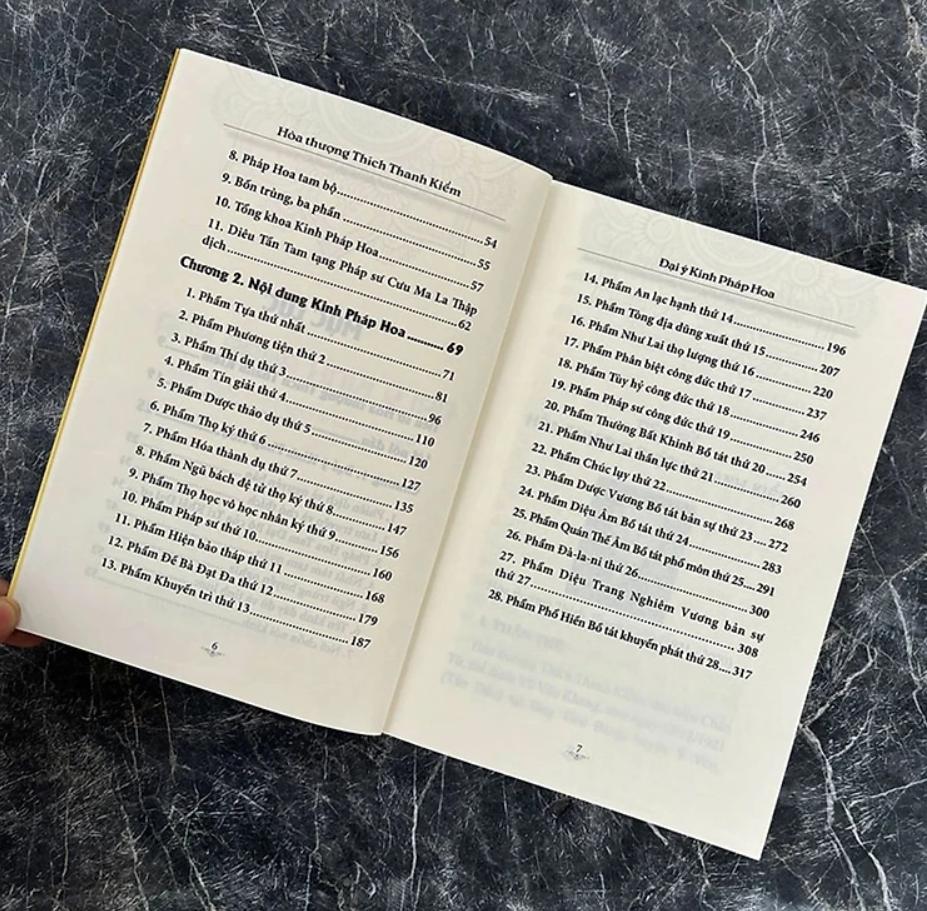 Hòa thượng Thích Thanh Kiểm
8. Pháp Hoa tam bộ.....54
9. Bốn trùng, ba phần.....55
10. Tổng khoa Kinh Pháp Hoa.....57
11. Diêu Tần Tam tạng Pháp sư Cưu Ma La Thập
dịch.....62
Chương 2. Nội dung Kinh Pháp Hoa.....69
1. Phẩm Tựa thứ nhất.....71
2. Phẩm Phương tiện thứ 2.....81
3. Phẩm Thí dụ thứ 3.....96
4. Phẩm Tín giải thứ 4.....110
5. Phẩm Dược thảo dụ thứ 5.....120
6. Phẩm Thọ ký thứ 6.....127
7. Phẩm Hóa thành dụ thứ 7.....135
8. Phẩm Ngũ bách đệ tử thọ ký thứ 8.....147
9. Phẩm Thọ học vô học nhân ký thứ 9.....156
10. Phẩm Pháp sư thứ 10.....160
11. Phẩm Hiện bảo tháp thứ 11.....168
12. Phẩm Đề Bà Đạt Đa thứ 12.....179
13. Phẩm Khuyến trì thứ 13.....187
6
Đại ý Kinh Pháp Hoa
14. Phẩm An lạc hạnh thứ 14.....196
15. Phẩm Tòng địa dũng xuất thứ 15.....207
16. Phẩm Như Lai thọ lượng thứ 16.....220
17. Phẩm Phân biệt công đức thứ 17.....237
18. Phẩm Tùy hỷ công đức thứ 18.....246
19. Phẩm Pháp sư công đức thứ 19.....250
20. Phẩm Thường Bất Khinh Bồ tát thứ 20.....254
21. Phẩm Như Lai thần lực thứ 21.....260
22. Phẩm Chúc lụy thứ 22.....268
23. Phẩm Dược Vương Bồ tát bản sự thứ 23.....272
24. Phẩm Diệu Âm Bồ tát thứ 24.....283
25. Phẩm Quán Thế Âm Bồ tát phổ môn thứ 25...291
26. Phẩm Đà-la-ni thứ 26.....300
27. Phẩm Diệu Trang Nghiêm Vương bản sự
thứ 27.....308
28. Phẩm Phổ Hiền Bồ tát khuyến phát thứ 28....317
7